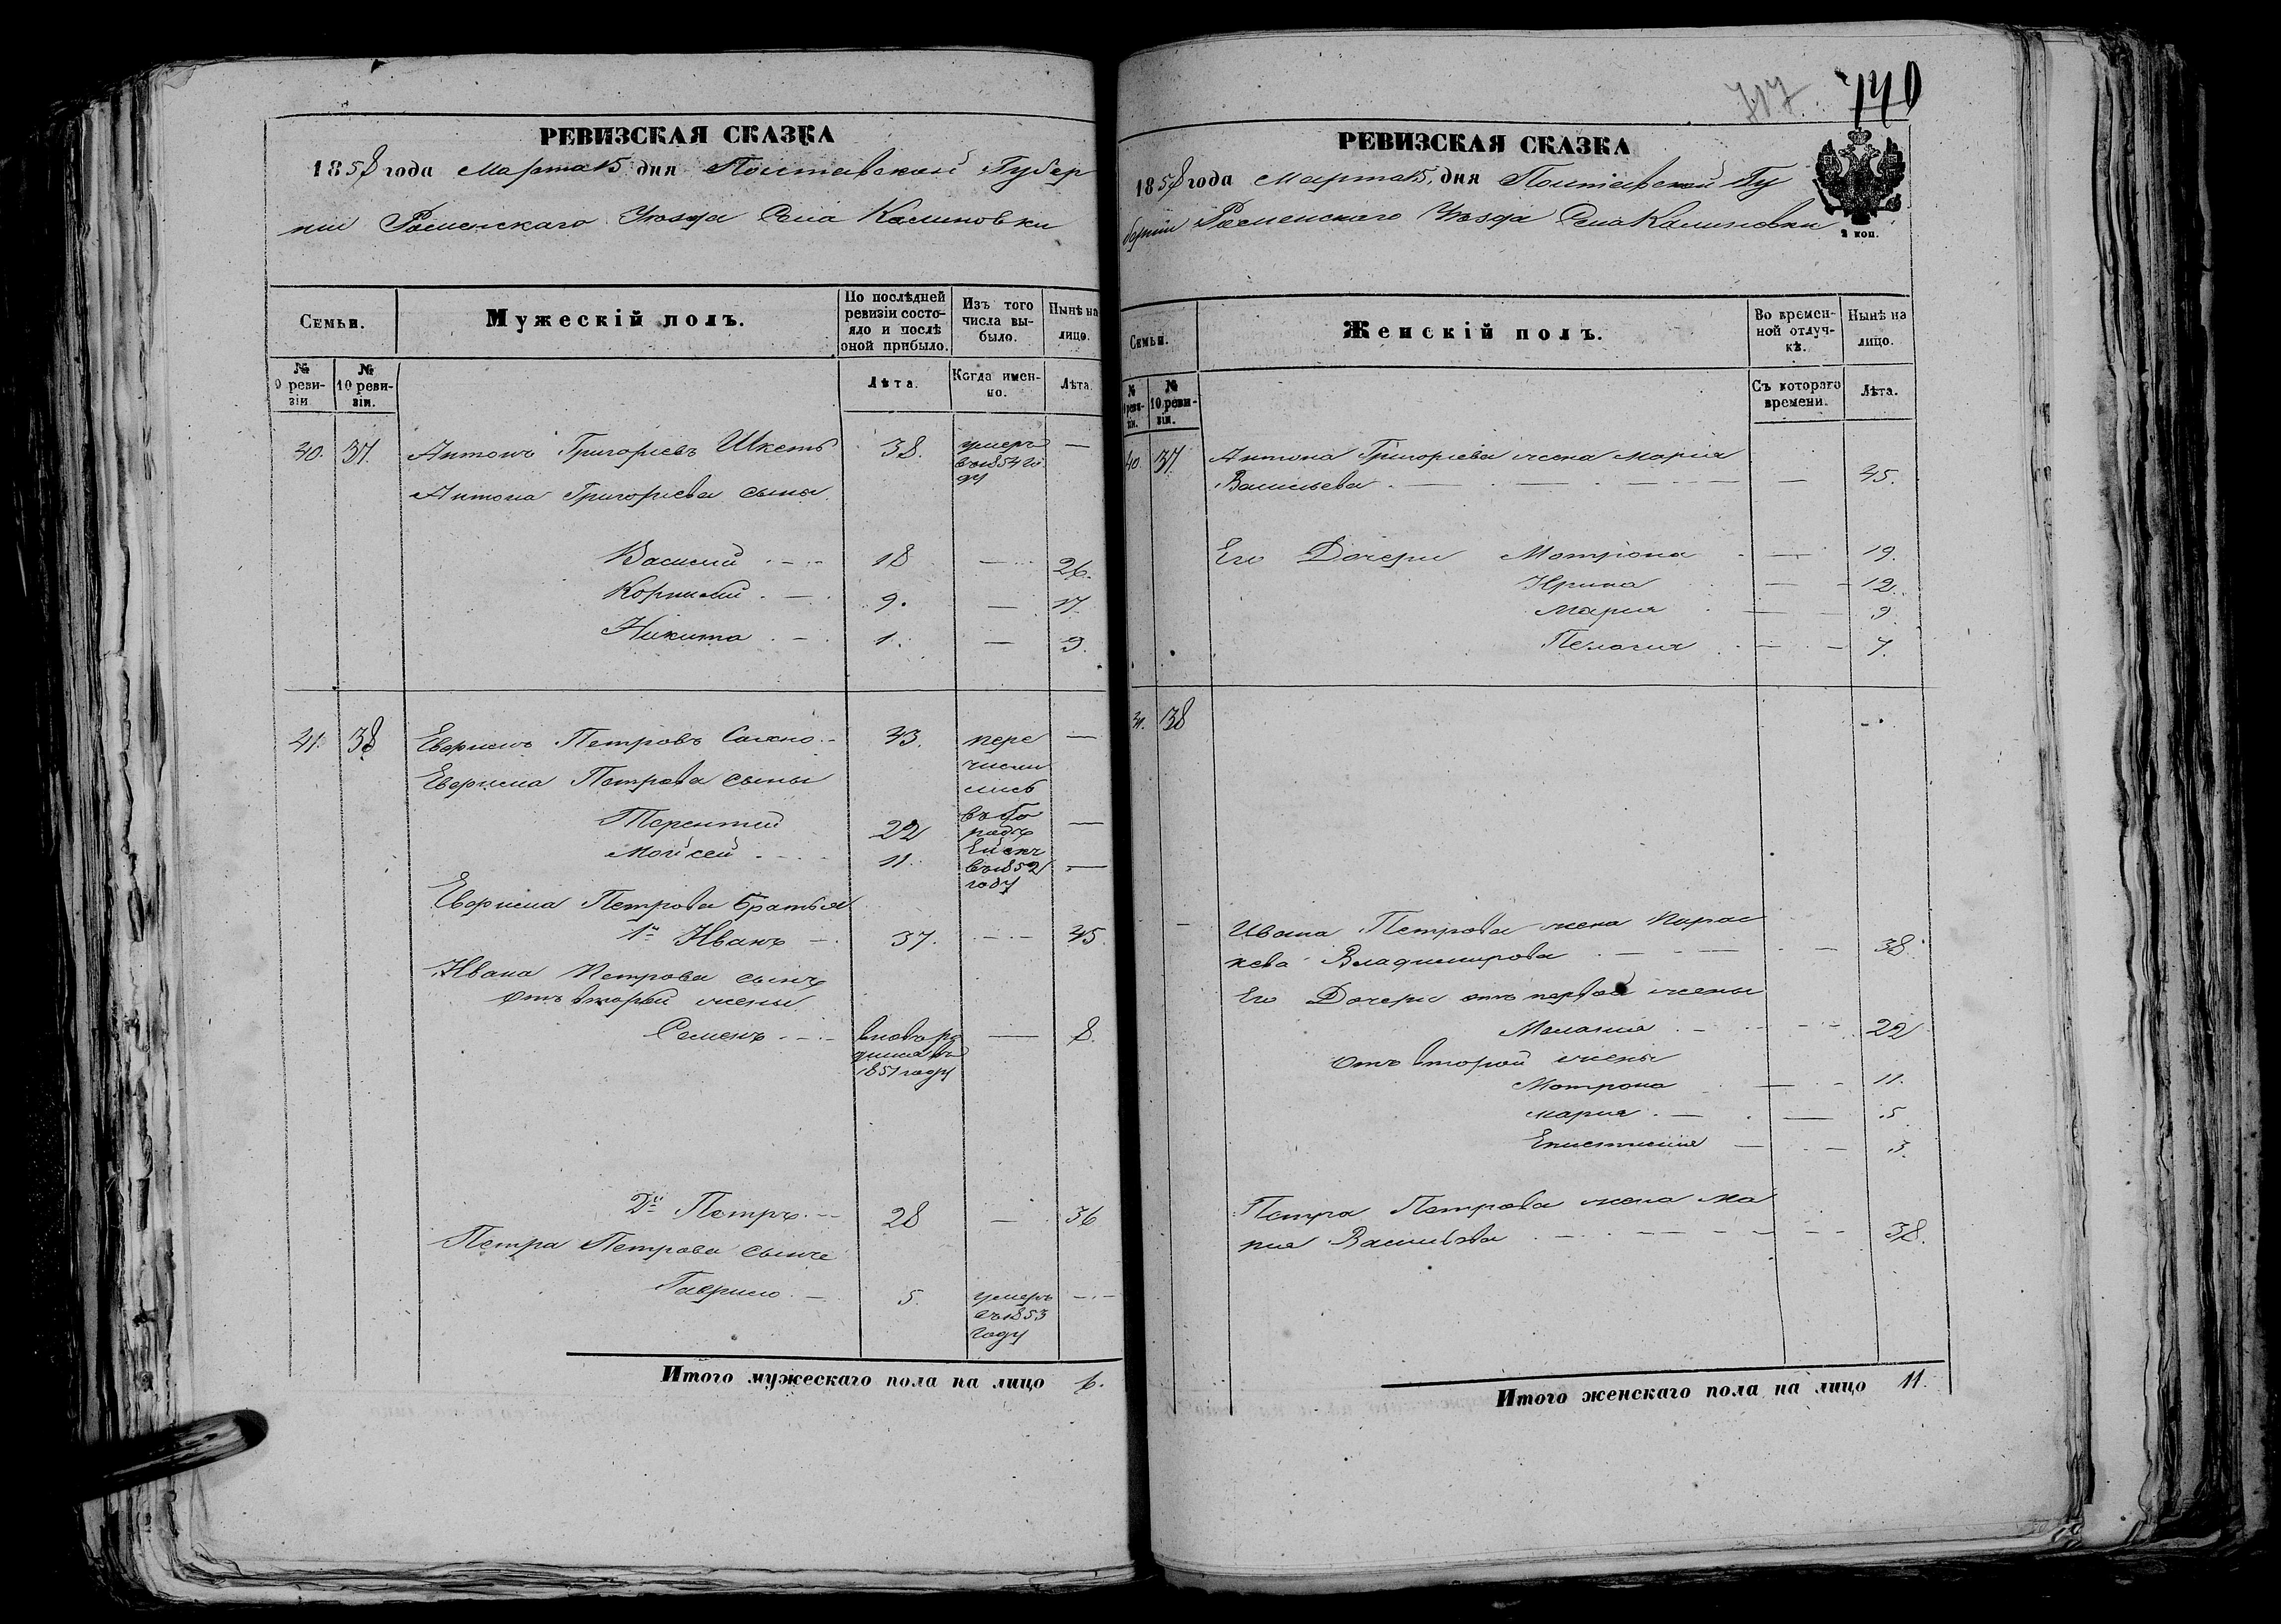 РЕВИЗСКАЯ СКАЗКА
1858 года Марта 15 дня Полтавской Губер
ніи Роменскаго Уѣзда Села Калиновки
Семьи.
Мужескій полъ.
По послѣдней ревизіи состояло и послѣ оной прибыло.
Изъ того числа выбыло.
Нынѣ на лицо.
№ 9 ревизіи
№ 10 ревизіи.
Лѣта.
Когда именно.
Лѣта.
40. 37. Антонъ Григорьевъ 38. умеръ въ 1854 году —
Антона Григорьева сыны
Василий 18 — 26.
Корнилий 9. — 17.
Никита 1. — 9.
41. 38 Ефримъ Петровъ 43. пере —
Ефрима Петрова сыны числи
лись
Терентий 22 въ го родъ —
Мойсей 11. Ейскъ въ 1852 году —
Ефрима Петрова братья
1й Иванъ 37. — 45.
Ивана Петрова сынъ
отъ второй жены
Семенъ вновь ро — 8.
дился въ
1851 году
2й Петръ 28 — 36
Петра Петрова сынъ
Гаврило 5. умеръ —
въ 1853
году
Итого мужескаго пола на лицо 6.
717. 740
РЕВИЗСКАЯ СКАЗКА
1858 года Марта 15 дня Полтавской Гу
берніи Роменскаго Уѣзда Села Калиновки
2 коп.
Семьи.
Женскій полъ.
Во временной отлучкѣ.
Нынѣ на лицо.
№ 9 ревизіи.
№ 10 ревизіи.
Съ котораго времени.
Лѣта.
40. 37. Антона Григорьева жена Марія
Васильева — 45.
Его Дочери Мотрона — 19.
Ирина — 12.
Мария — 9.
Пелагия — 7.
41. 38
Ивана Петрова жена Парас
кева Владимирова — 38.
Его Дочери отъ первой жены
Мелания — 22
отъ второй жены
Мотрона — 11.
Мария — 5
Епистимия — 3.
Петра Петрова жена Ма
рия Васильева — 38.
Итого женскаго пола на лицо 11.